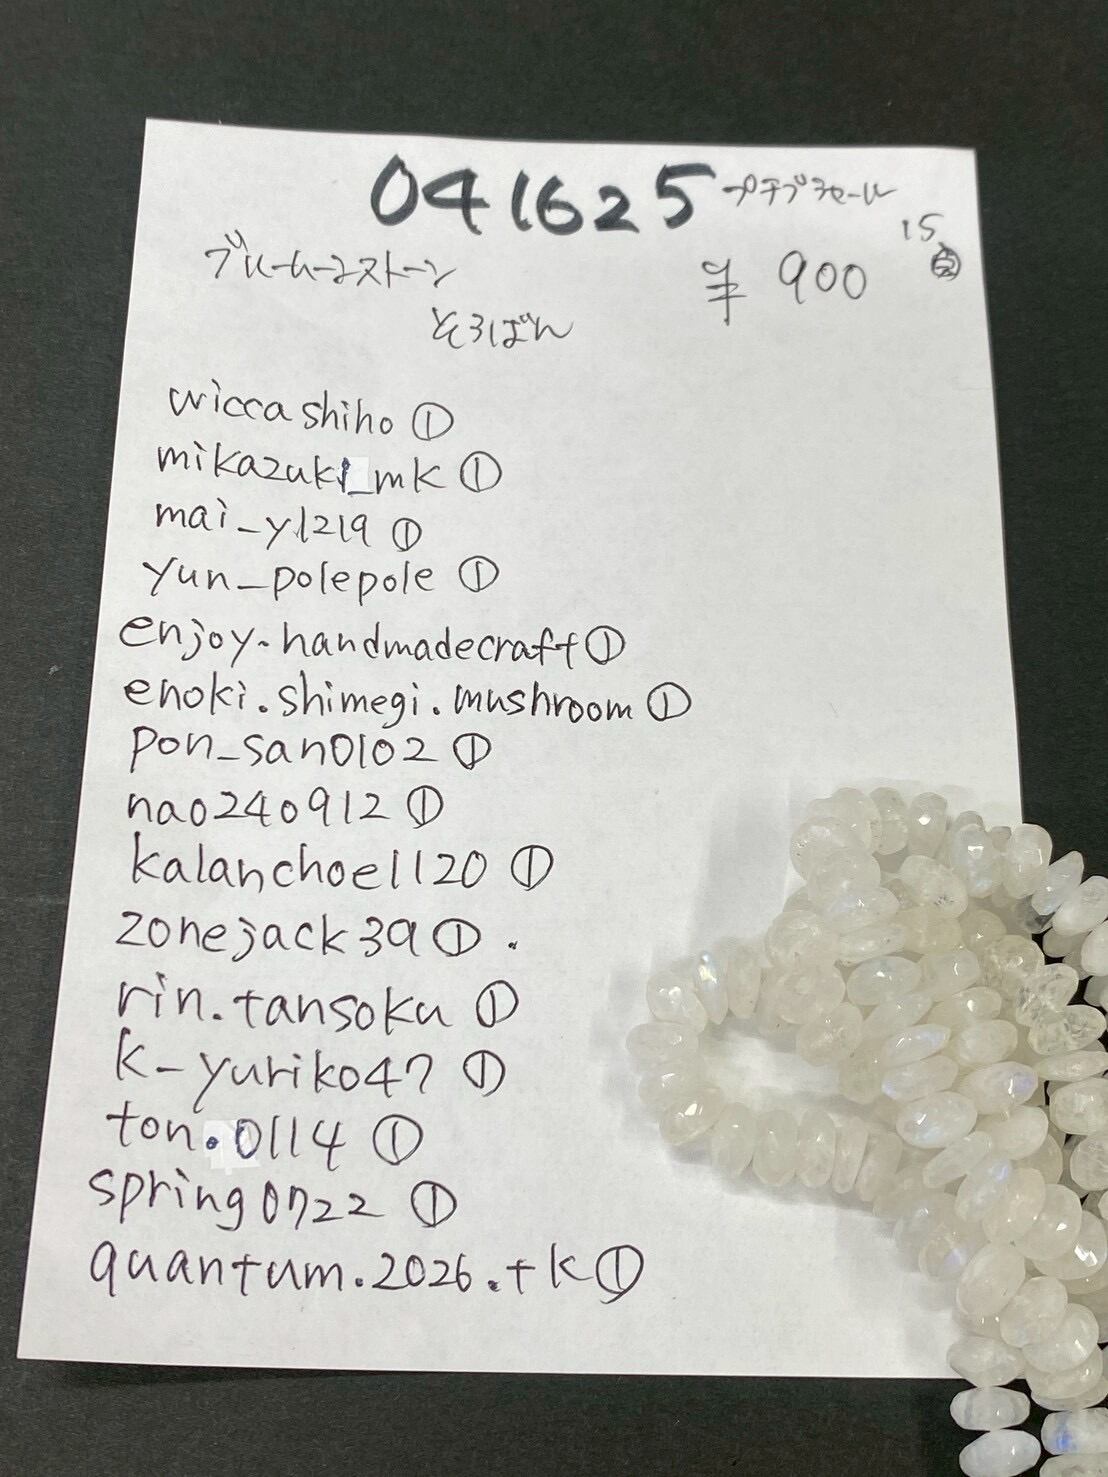 041625 プチプラセール
ブルームーンストーン ¥ 900 15点
そろばん
wiccashiho ①
mikazuki_mk ①
mai_y1219 ①
yun_polepole ①
enjoy.handmadecraft ①
enoki.shimegi.mushroom ①
pon_san0102 ①
nao240912 ①
kalanchoe1120 ①
zonejack39 ① .
rin.tansoku ①
k_yuriko47 ①
ton.0114 ①
spring0722 ①
quantum.2026.tk ①